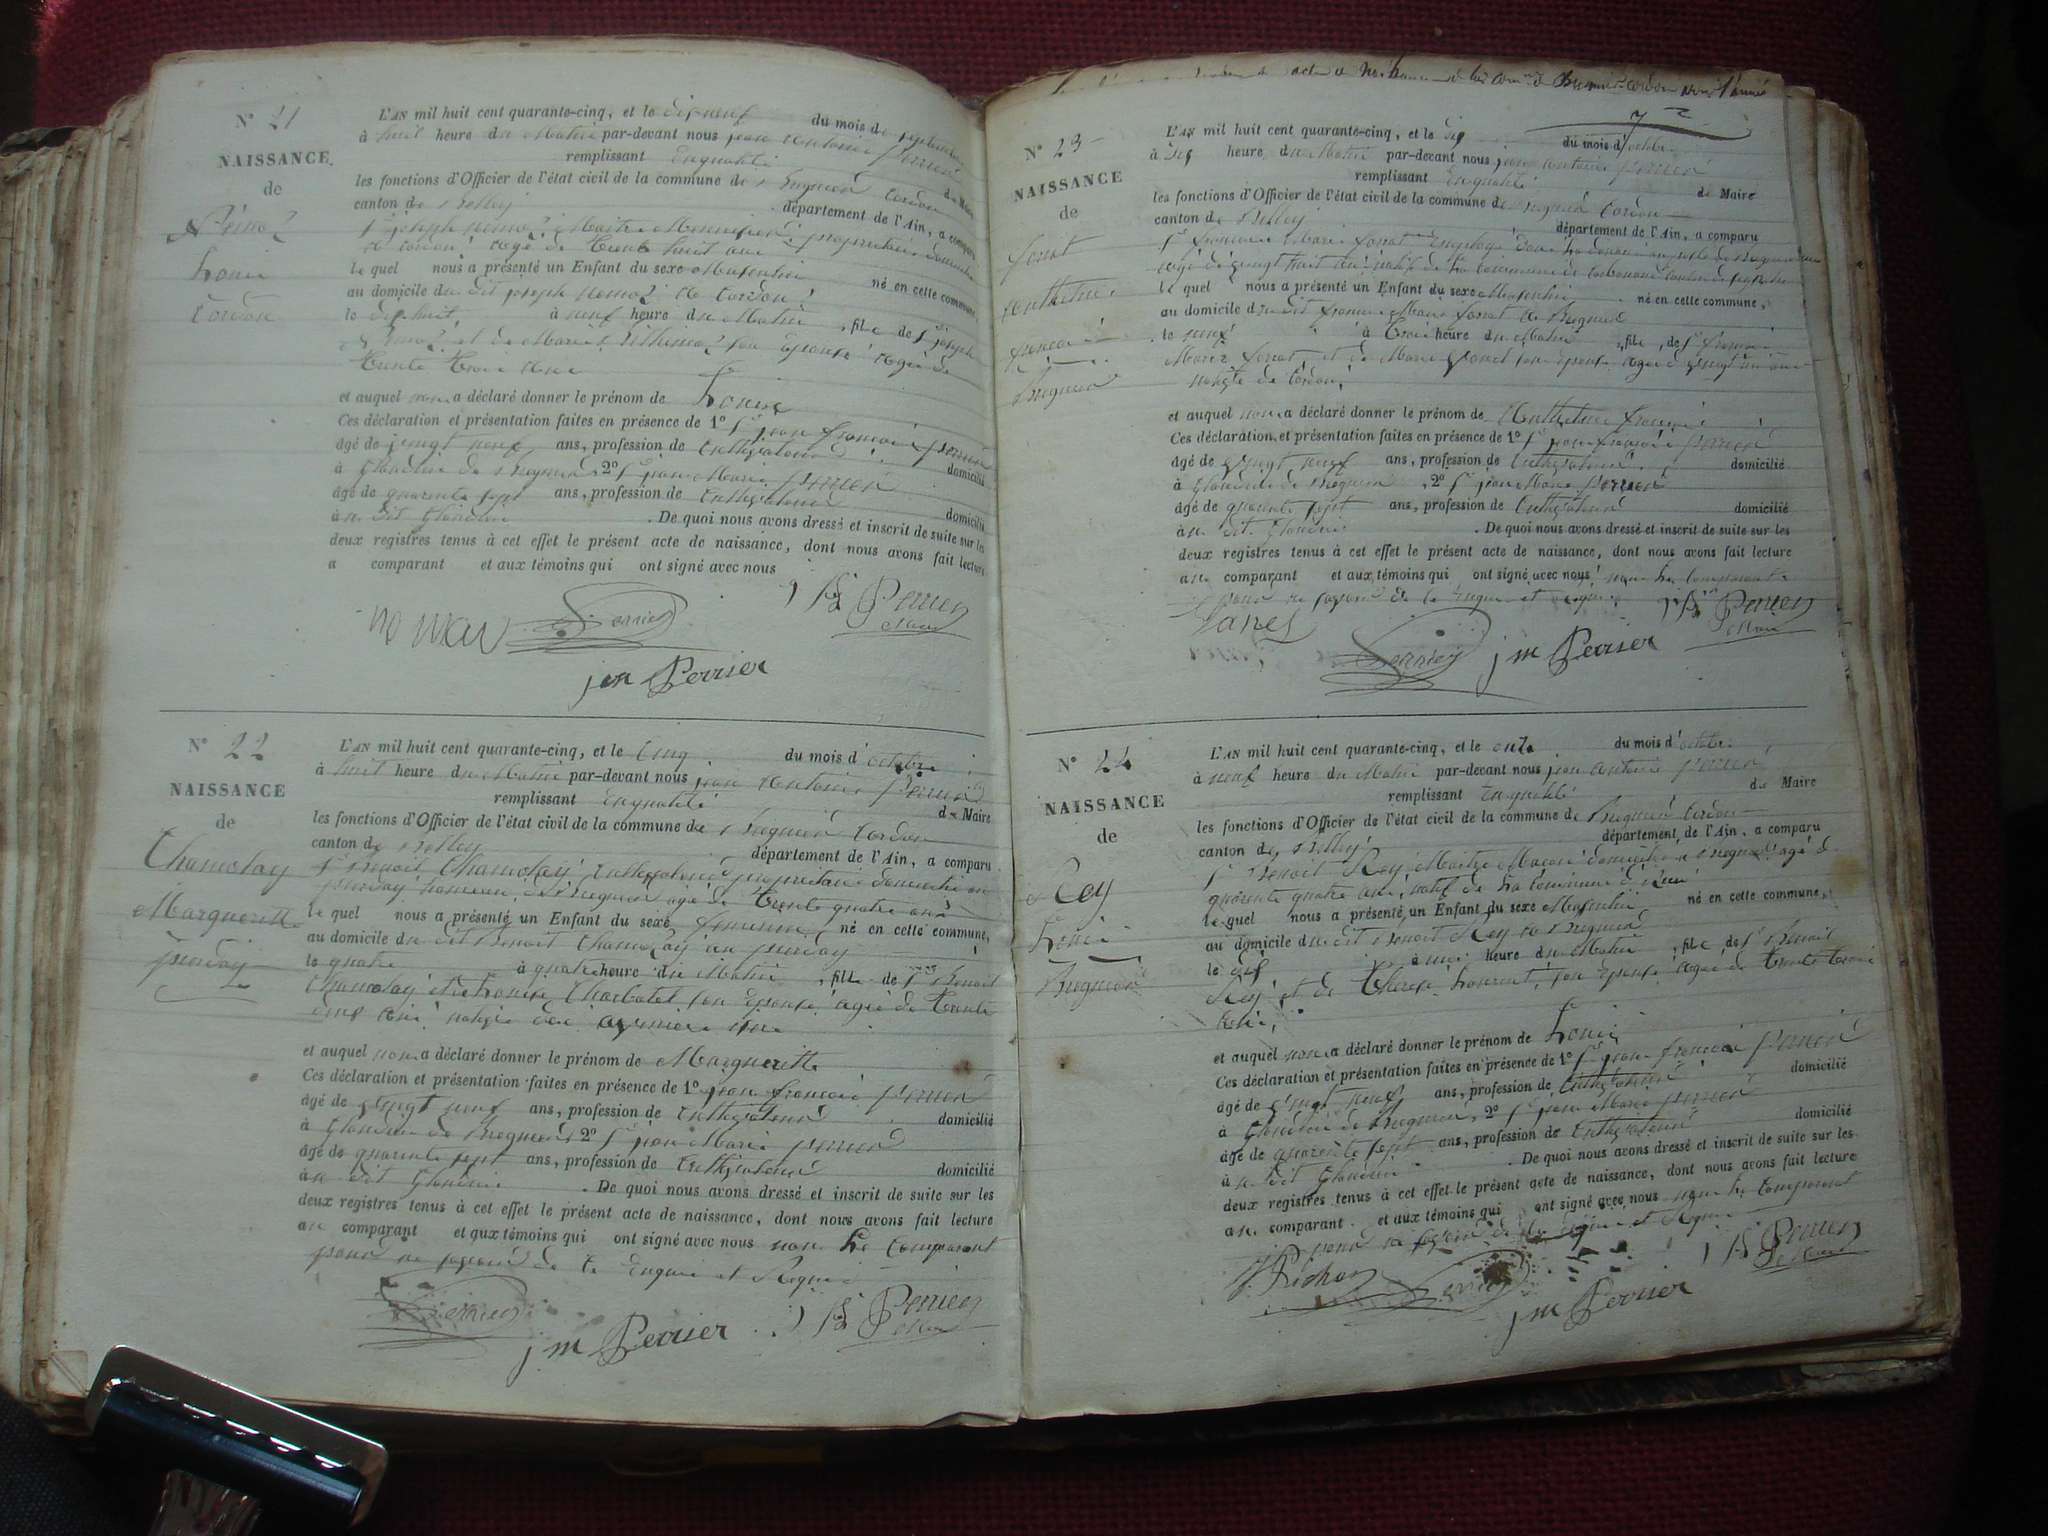 N° 21
NAISSANCE
de
Louis
Cordon
L'AN mil huit cent quarante-cinq, et le dix neuf du mois de septembre
à huit heure du Matin par-devant nous jean Antoine Perrier
remplissant En qualité de Maire
les fonctions d'Officier de l'état civil de la commune de Bregnier Cordon
canton de Belley département de l'Ain, a comparu
Sr joseph proprietaire
de Cordon agé de trente huit ans
le quel nous a présenté un Enfant du sexe Masculin né en cette commune,
au domicile du dit joseph de Cordon
le dix huit à neuf heure du Matin, fils de Sr joseph
et de Marie son épouse agée de
trente trois ans
et auquel nous a déclaré donner le prénom de Louis
Ces déclaration et présentation faites en présence de 1° Sr jean françois perrier
âgé de vingt neuf ans, profession de Cultivateur domicilié
à Glandieu de Bregnier 2° Sr jean Marie perrier
âgé de quarente sept ans, profession de Cultivateur domicilié
au dit Glandieu . De quoi nous avons dressé et inscrit de suite sur les
deux registres tenus à cet effet le présent acte de naissance, dont nous avons fait lecture
a comparant et aux témoins qui ont signé avec nous
Perrier
Maire
jm Perrier
N° 22
NAISSANCE
de
Chamolay
Margueritte
L'AN mil huit cent quarante-cinq, et le Cinq du mois d'octobre
à huit heure du Matin par-devant nous jean Antoine Perrier
remplissant En qualité de Maire
les fonctions d'Officier de l'état civil de la commune de Bregnier Cordon
canton de Belley département de l'Ain, a comparu
Sr Benoit Chamolay Cultivateur proprietaire
hameau de Bregnier agé de trente quatre ans
le quel nous a présenté un Enfant du sexe feminin né en cette commune,
au domicile du dit Benoit Chamolay
le quatre à quatre heure du Matin, fille de Sr Benoit
Chamolay son épouse agée de trente
et auquel nous a déclaré donner le prénom de Margueritte
Ces déclaration et présentation faites en présence de 1° jean françois perrier
âgé de vingt neuf ans, profession de Cultivateur domicilié
à Glandieu de Bregnier 2° Sr jean Marie perrier
âgé de quarente sept ans, profession de Cultivateur domicilié
au dit Glandieu . De quoi nous avons dressé et inscrit de suite sur les
deux registres tenus à cet effet le présent acte de naissance, dont nous avons fait lecture
au comparant et aux témoins qui ont signé avec nous non le Comparant
pour ne savoir de ce Enquis et Requis
Perrier
jm Perrier
Perrier
Maire
N° 23
NAISSANCE
de
françois
Bregnier
L'AN mil huit cent quarante-cinq, et le dix du mois d'octobre
à six heure du Matin par-devant nous jean Antoine perrier
remplissant En qualité de Maire
les fonctions d'Officier de l'état civil de la commune de Bregnier Cordon
canton de Belley département de l'Ain, a comparu
agé de vingt huit ans natif de la Commune de
le quel nous a présenté un Enfant du sexe Masculin né en cette commune,
au domicile du dit de Bregnier
le neuf à trois heure du Matin, fils de Sr françois
et de Marie son épouse agée de vingt un ans
native de Cordon
et auquel nous a déclaré donner le prénom de françois
Ces déclaration et présentation faites en présence de 1° Sr jean françois perrier
âgé de vingt neuf ans, profession de Cultivateur domicilié
à Glandieu de Bregnier, 2° Sr jean Marie perrier
âgé de quarente sept ans, profession de Cultivateur domicilié
au dit Glandieu . De quoi nous avons dressé et inscrit de suite sur les
deux registres tenus à cet effet le présent acte de naissance, dont nous avons fait lecture
au comparant et aux témoins qui ont signé avec nous non le Comparant
pour ne savoir de ce Enquis et requis
Perrier
Maire
Perrier
jm Perrier
N° 24
NAISSANCE
de
Rey
Louis
Bregnier
L'AN mil huit cent quarante-cinq, et le onze du mois d'octobre
à neuf heure du Matin par-devant nous jean Antoine perrier
remplissant En qualité de Maire
les fonctions d'Officier de l'état civil de la commune de Bregnier Cordon
canton de Belley département de l'Ain, a comparu
Sr Benoit Rey Maitre Macon domicilié a Bregnier agé de
quarente quatre ans, natif de la Commune
le quel nous a présenté un Enfant du sexe Masculin né en cette commune,
au domicile du dit Benoit Rey de Bregnier
le dix à une heure du Matin, fils de Sr Benoit
Rey et de Therese Laurent, son épouse agée de trente trois
ans,
et auquel nous a déclaré donner le prénom de Louis
Ces déclaration et présentation faites en présence de 1° Sr jean françois perrier
âgé de vingt neuf ans, profession de Cultivateur domicilié
à Glandieu de Bregnier, 2° Sr jean Marie perrier
âgé de quarente sept ans, profession de Cultivateur domicilié
au dit Glandieu . De quoi nous avons dressé et inscrit de suite sur les
deux registres tenus à cet effet le présent acte de naissance, dont nous avons fait lecture
au comparant et aux témoins qui ont signé avec nous non le Comparant
pour ne savoir de ce Enquis et Requis
Perrier
Maire
jm Perrier